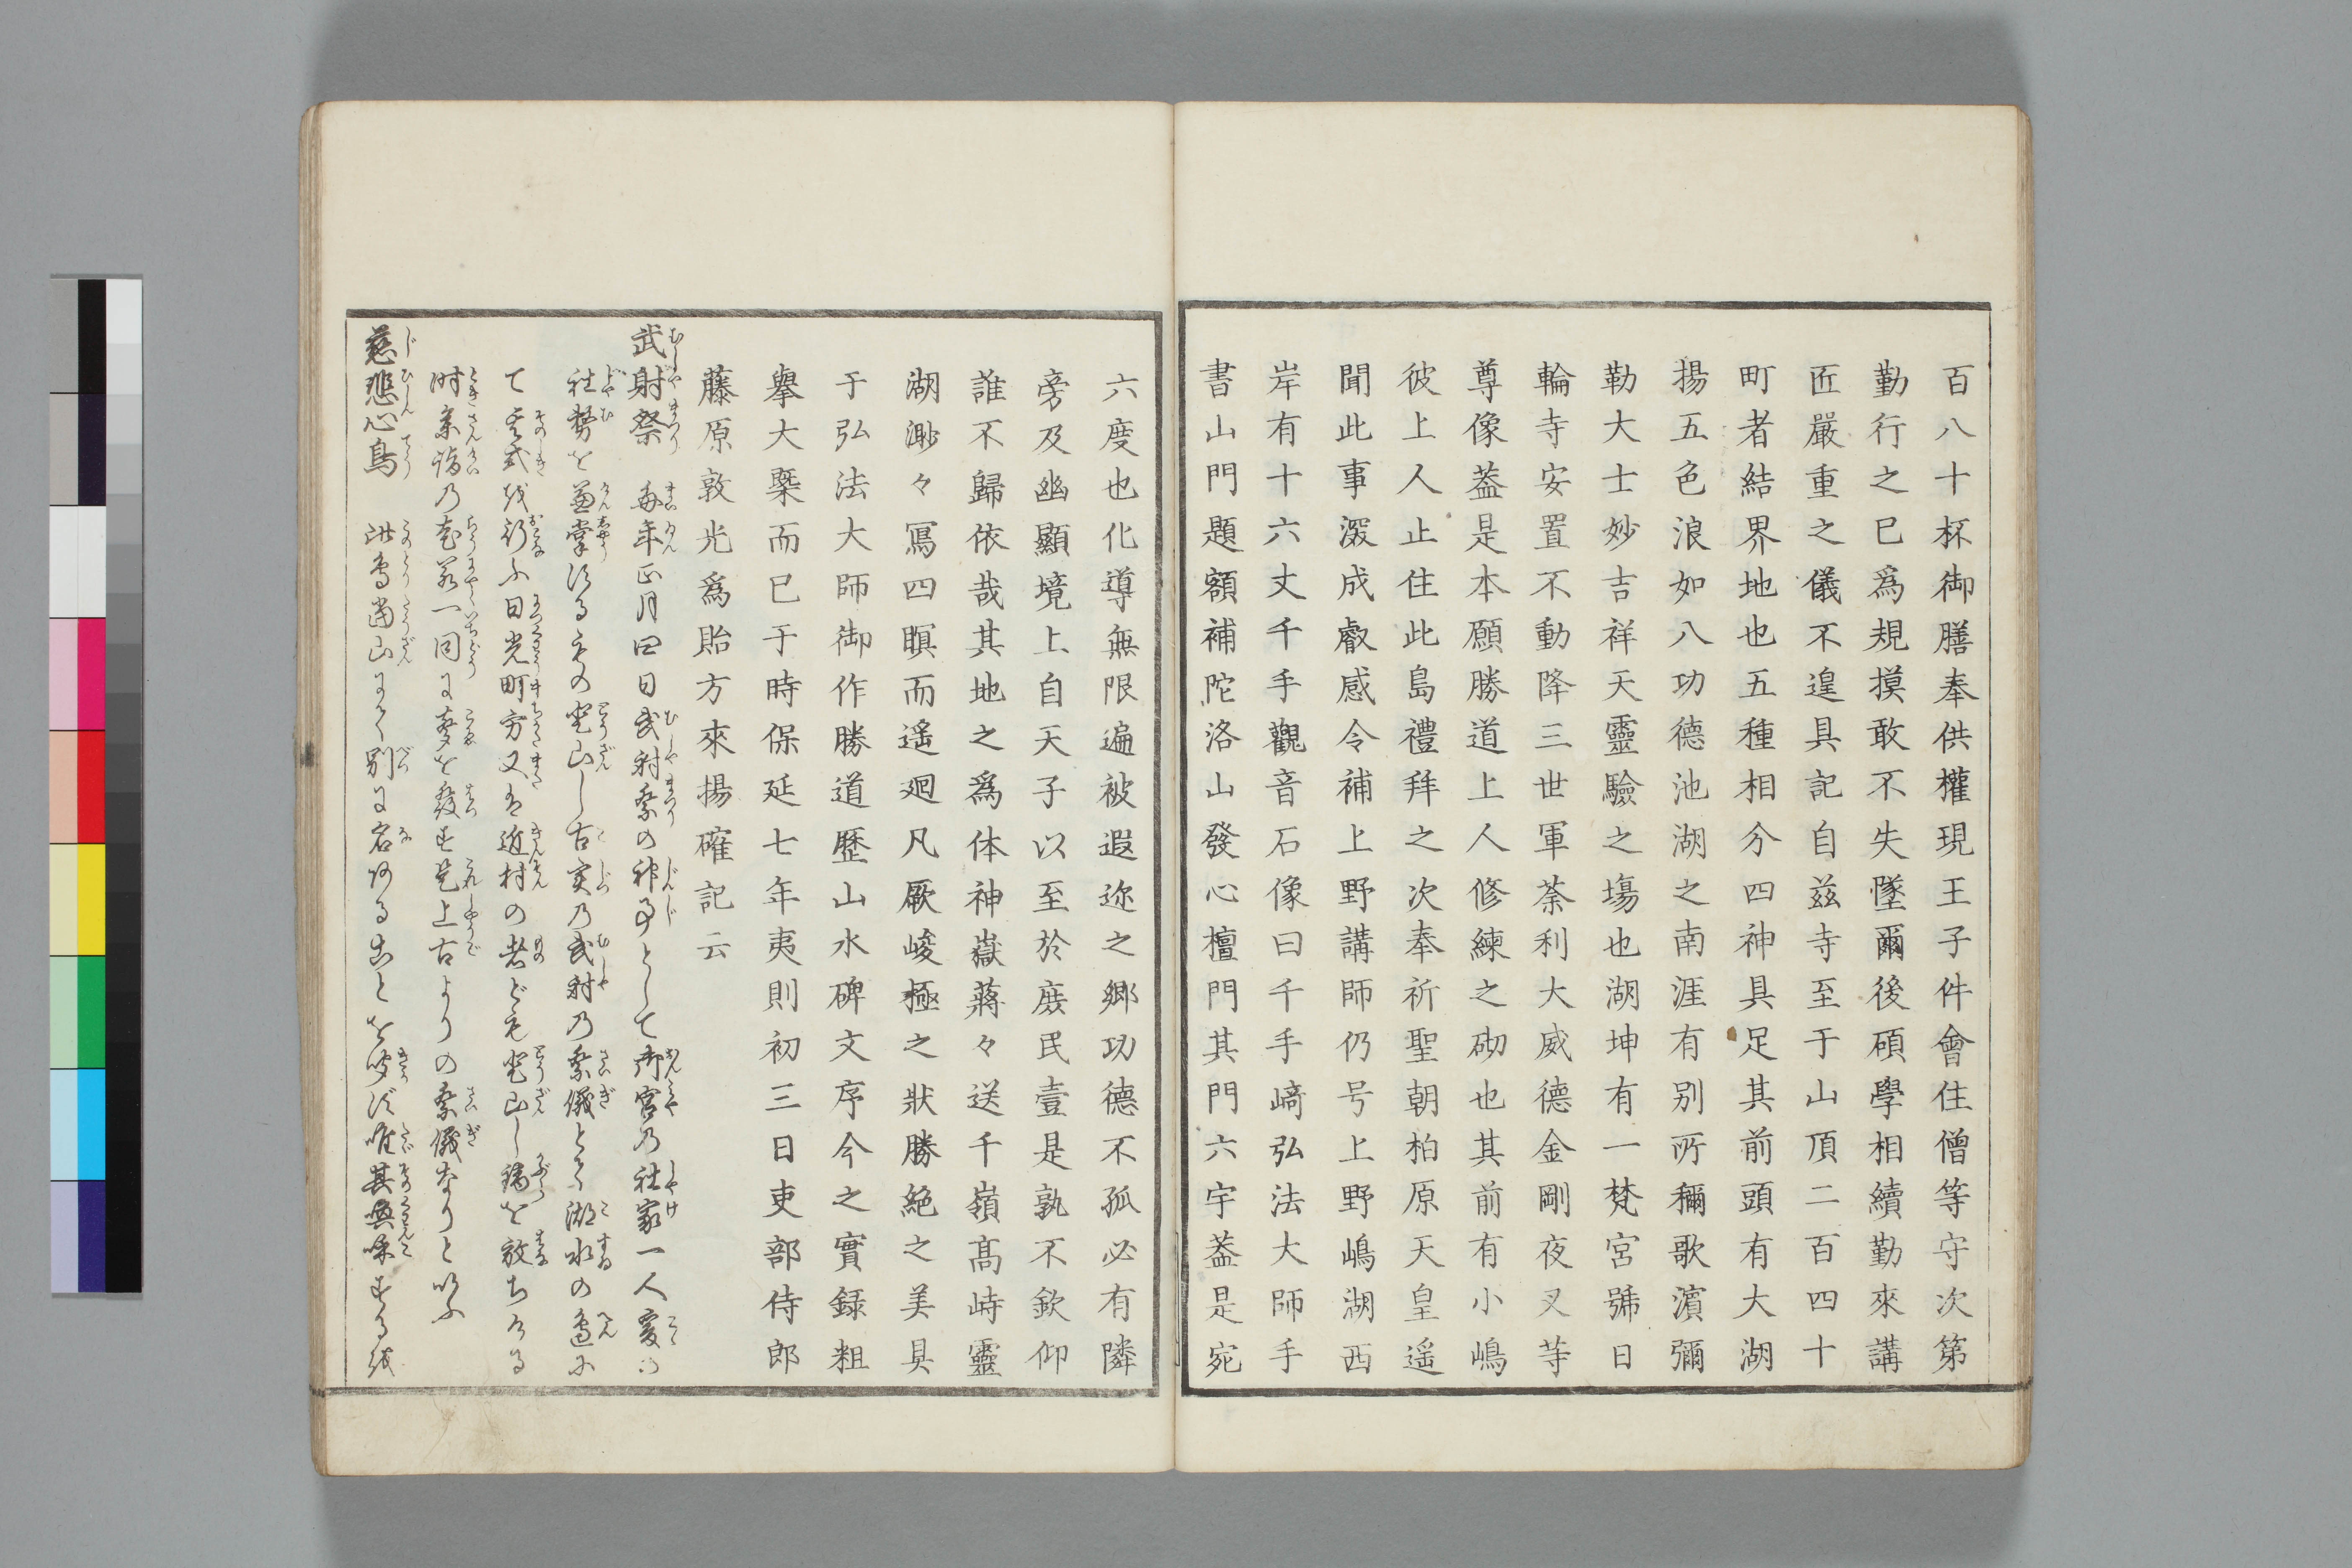 百八十杯御膳奉供權現王子件會住僧等守次第
勤行之已爲規摸敢不失墜爾後碩學相續勤來講
匠嚴重之儀不遑具記自茲寺至于山頂二百四十
町者結界地也五種相分四神具足其前頭有大湖
揚五色浪如八功德池湖之南涯有别所稱歌濱彌
勒大士妙吉祥天靈驗之塲也湖坤有一梵宮號日
輪寺安置不動降三世軍荼利大威德金剛夜叉等
尊像葢是本願勝道上人修練之砌也其前有小嶋
彼上人止住此島禮拜之次奉祈聖朝柏原天皇遥
聞此事深成叡感令補上野講師仍号上野嶋湖西
岸有十六丈千手觀音石像曰千手﨑弘法大師手
書山門題額補陀洛山發心檀門其門六宇葢是宛
六度也化導無限遍被遐迩之郷功德不孤必有隣
旁及幽顯境上自天子以至於庻民壹是孰不欽仰
誰不歸依哉其地之爲体神嶽蔣々送千嶺髙峙靈
湖渺々寫四瞑而遥廻凡厥峻極之狀勝絶之美具
于弘法大師御作勝道歴山水碑文序今之實録粗
擧大槩而已于時保延七年夷則初三日吏部侍郎
藤原敦光爲貽方來揚確記云
武射祭 毎年正月四日武射祭の神事として御宮の社家一人爰の
社務を兼掌する者の登山し古実乃武射乃祭儀とて湖水の邉に
て其式を行ふ日光町方又は近村の者ども登山し鏑を放ちける
時参詣乃老若一同に聲を發す是上古よりの祭儀なりと以ふ
慈悲心鳥 此鳥當山にて別に名ある由とを聞ず唯其異味する故